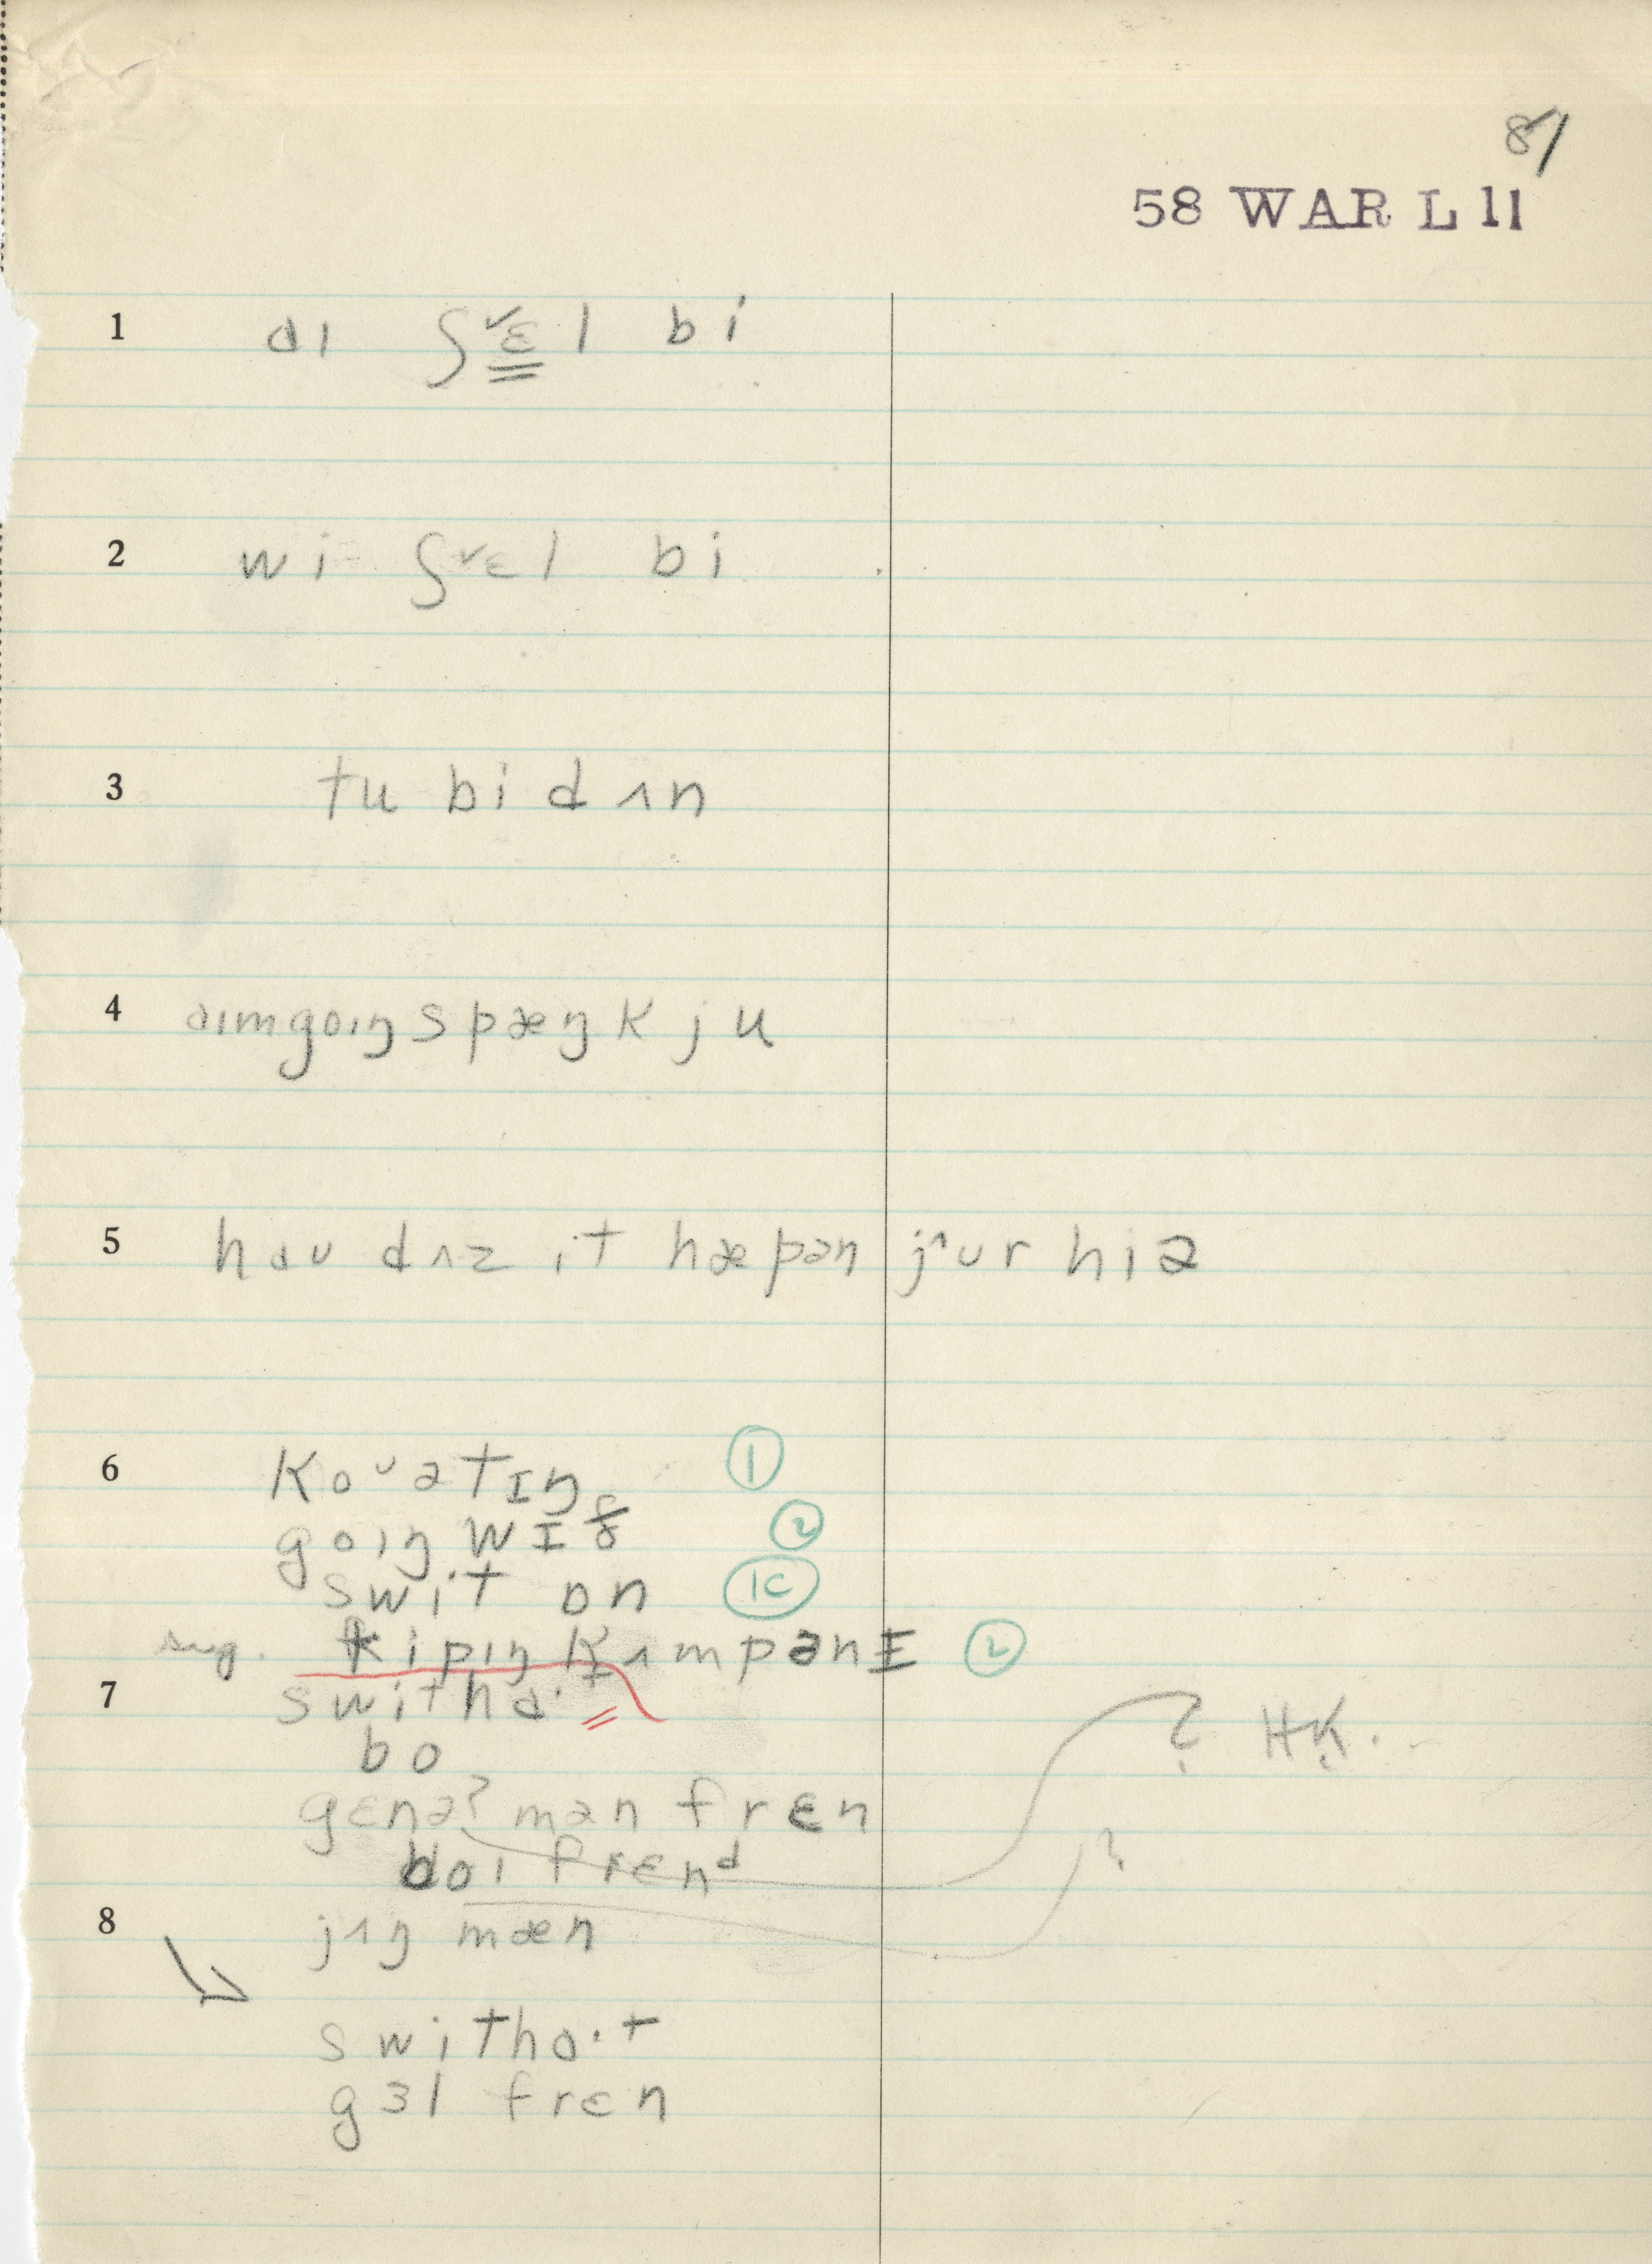 81
58 WAR L 11
1 ɑɪ ʃᵛɛl bi
2 wi ʃᵛɛl bi
3 tu bi dʌn
4 ɑɪmgoɪŋspæŋk ju
5 hɑʊ dʌz it hæpən jᶺʊr hiə
6 koᵕətɪŋ ①
goɪŋ wɪð ②
swit ɒn 1C
sug. kipɪŋ kʌmpənɪ ②
7 swithɑ· ? HK.
bo
gɛnəʔmən frɛn
bɔɪ frɛnᵈ ?
8 jʌŋ mæn
swithɑ·t
gɜl frɛn